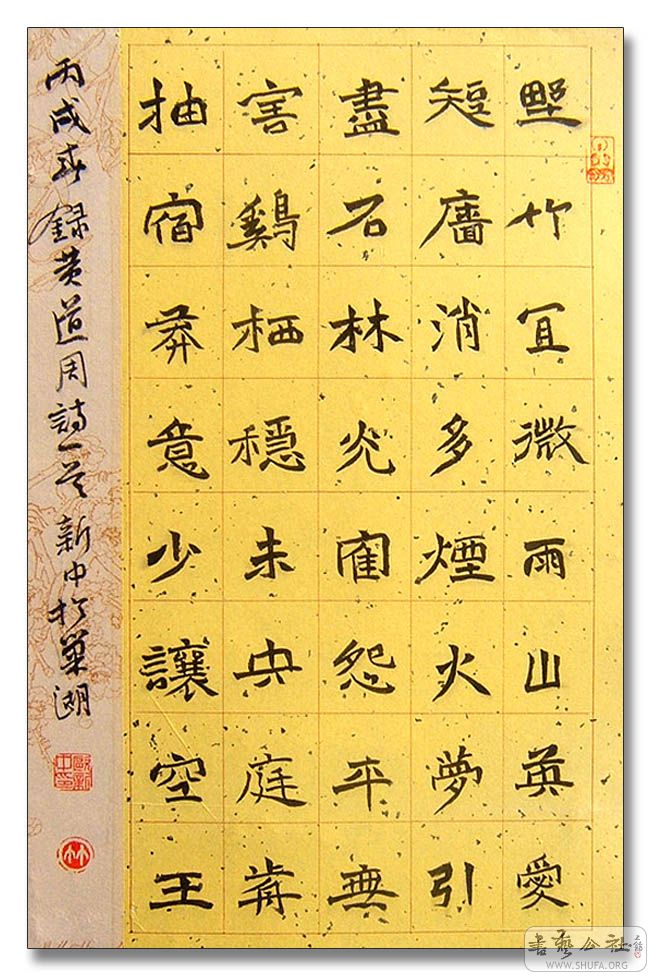 野竹冝微雨山英愛
短廧消多煙火夢引
盡石林光寇怨平無
害鷄栖穩未央庭前
抽宿莽意少讓空王
丙戌春録黄道周詩一首 新中於巢湖
竹
書藝公社
WWW.SHUFA.ORG